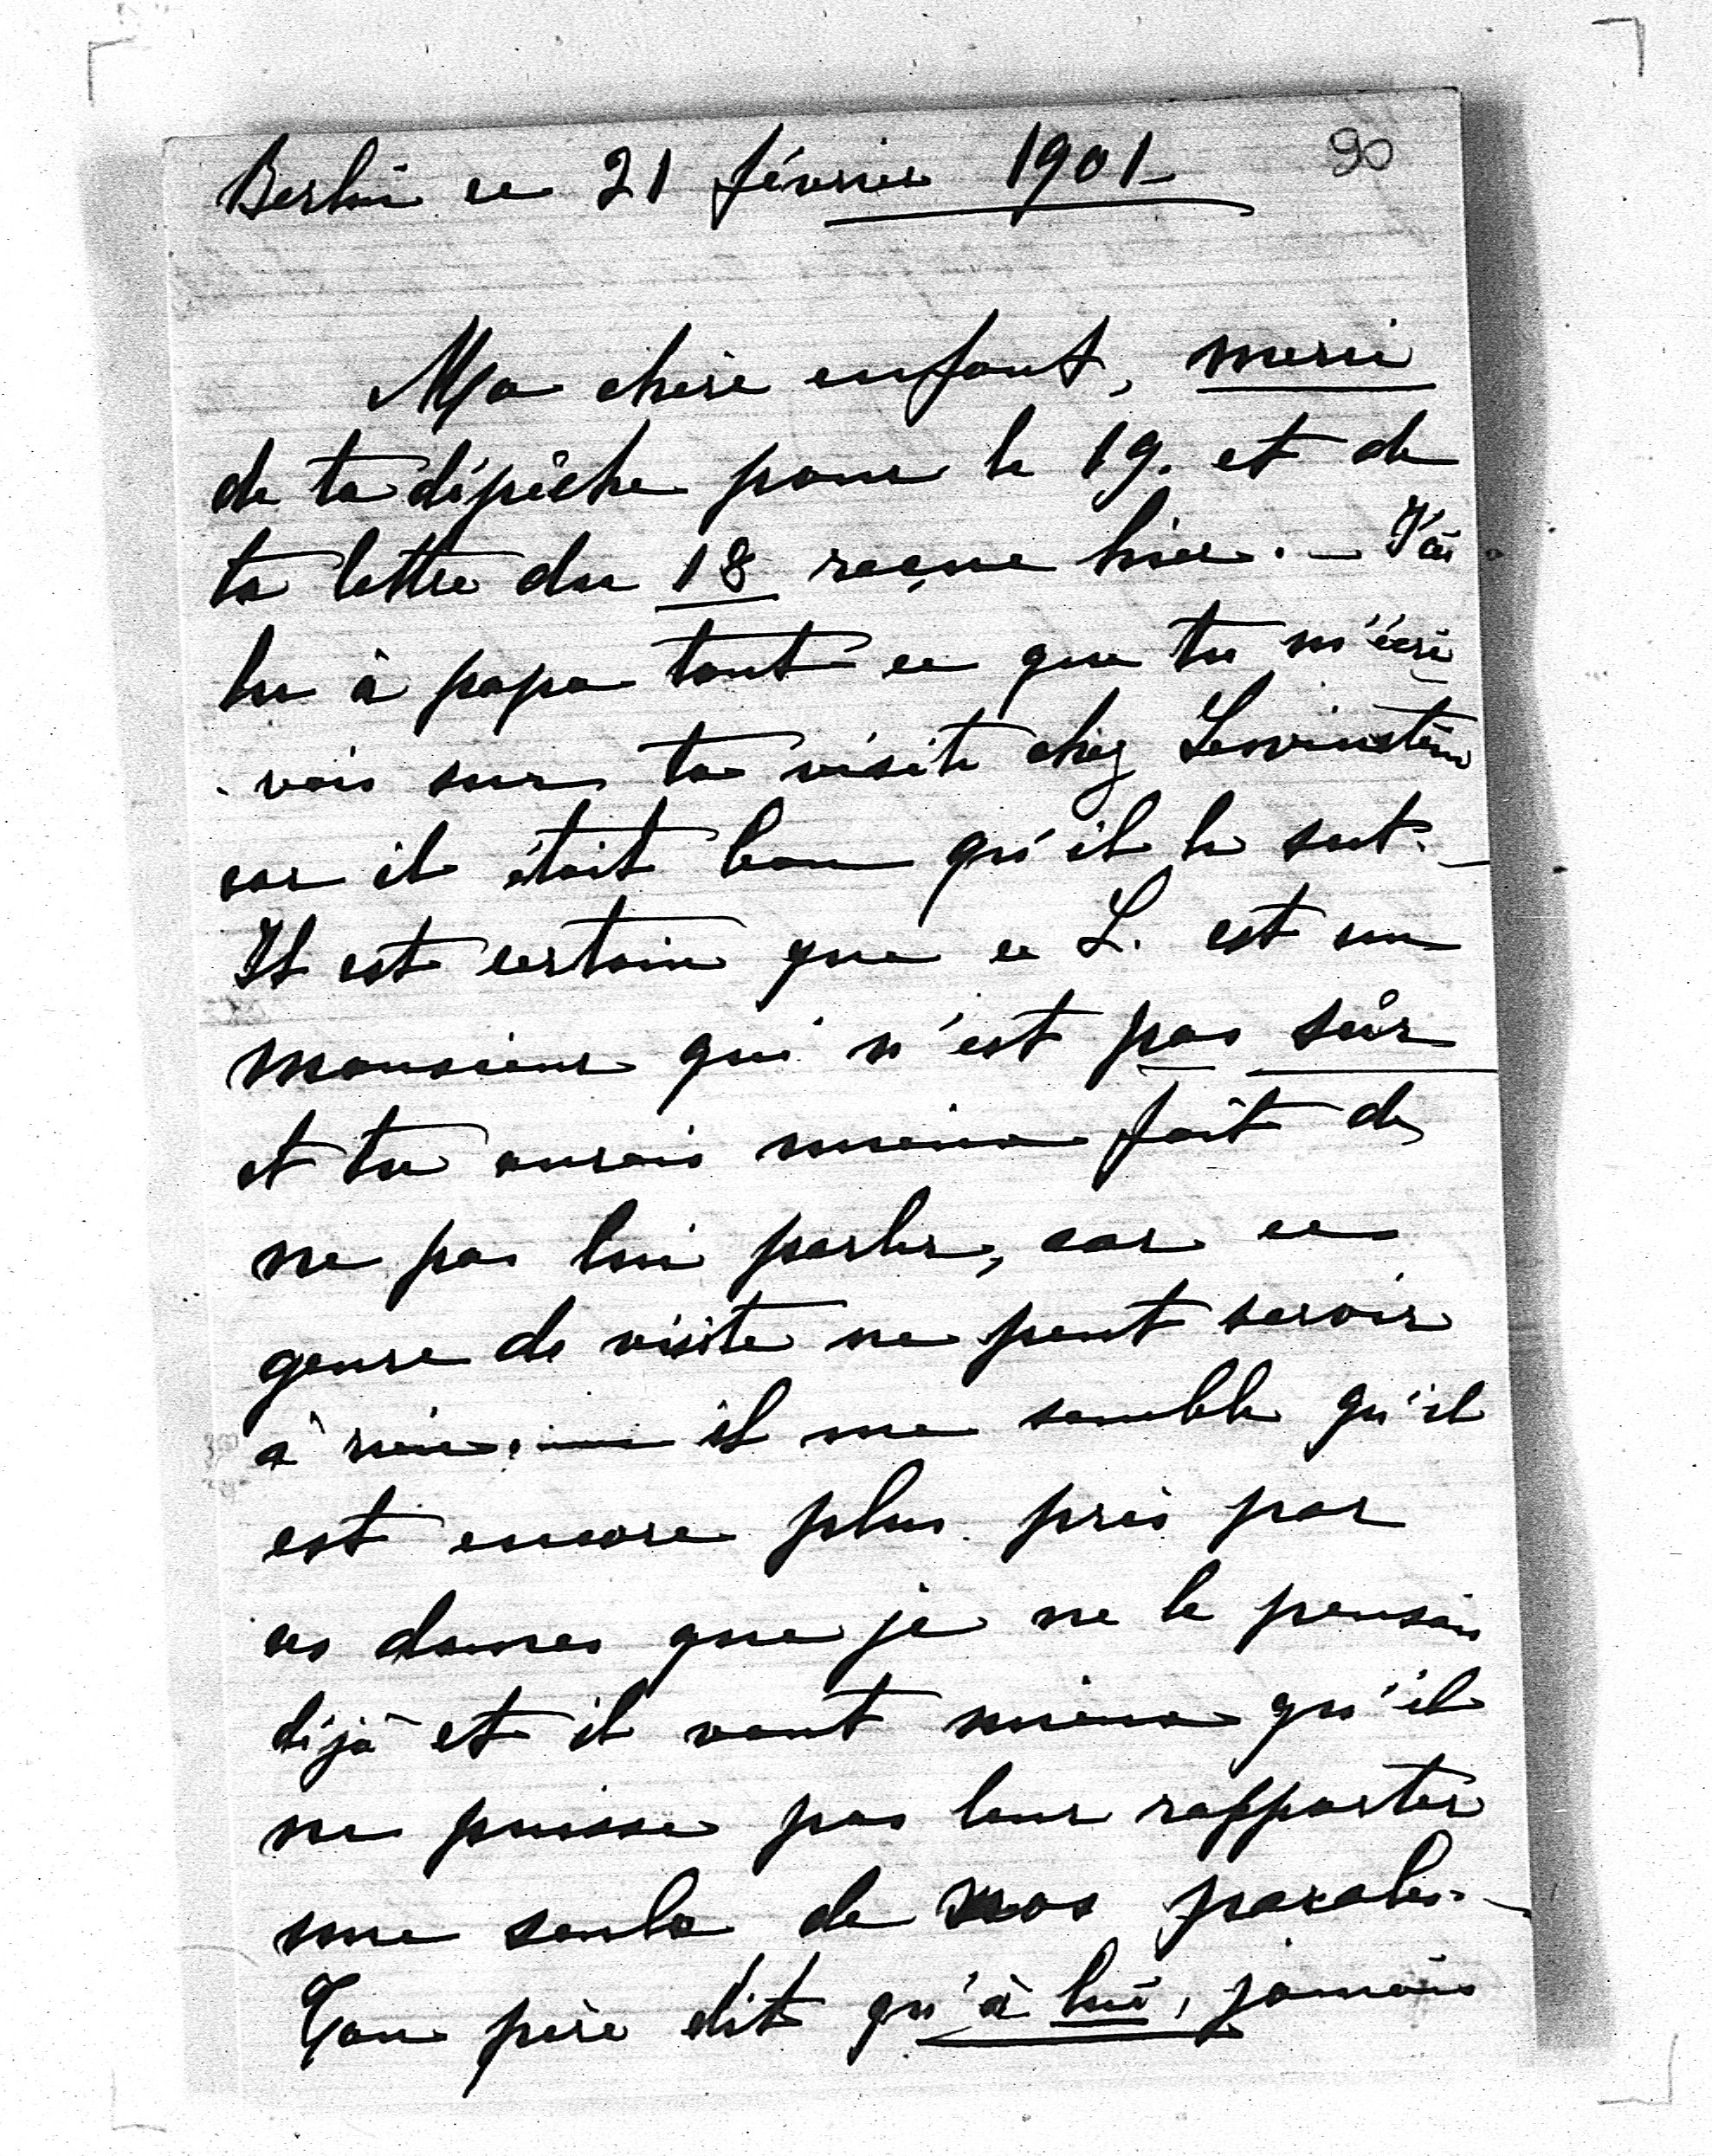 Berlin ce 21 février 1901 90
Ma chère enfant, merci
de ta dépêche pour le 19. et de
ta lettre du 18 reçue hier. — J'ai
lu à papa tout ce que tu m'écri
vais sur ta visite chez Lewinstein
car il était bon qu'il le sut. —
Il est certain que ce L. est un
monsieur qui n'est pas sûr
et tu aurais mieux fait de
ne pas lui parler, car ce
genre de visite ne peut servir
à rien. — il me semble qu'il
est encore plus pris par
ces dames que je ne le pensais
déjà et il vaut mieux qu'il
ne puisse pas leur rapporter
une seule de nos paroles. —
Ton père dit qu'à lui, jamais